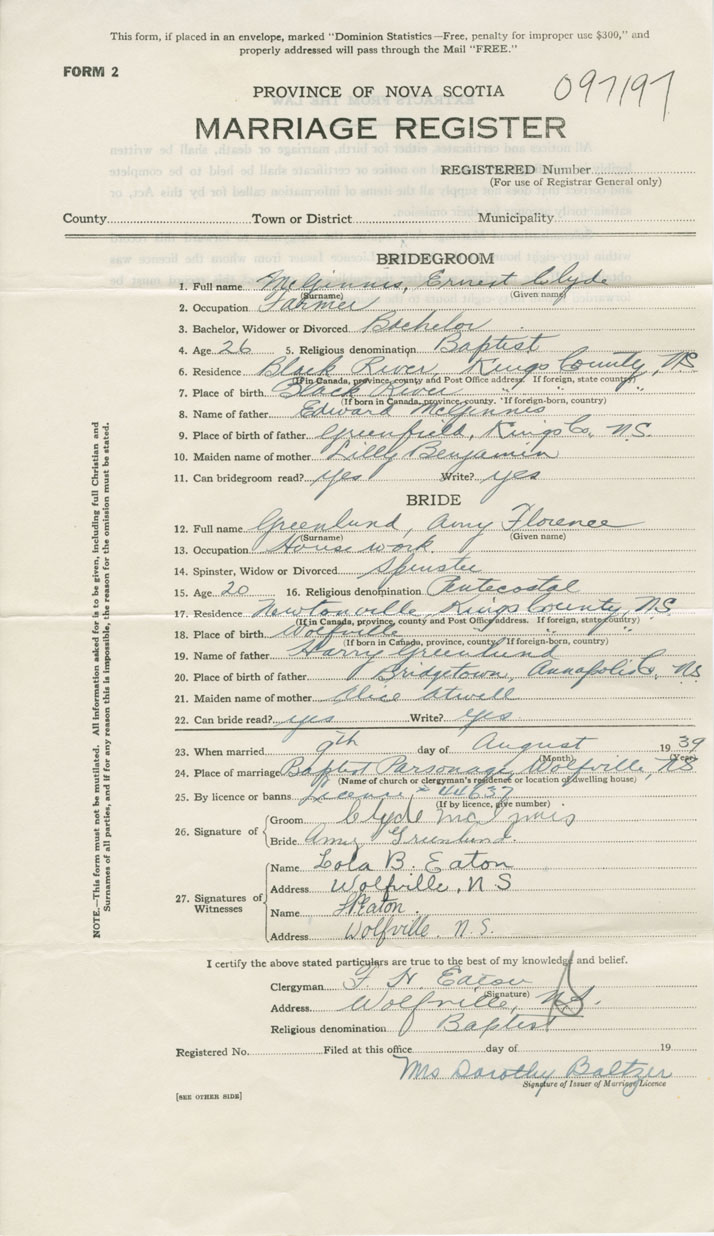 This form, if placed in an envelope, marked "Dominion Statistics—Free, penalty for improper use $300," and
properly addressed will pass through the Mail "FREE."
FORM 2
PROVINCE OF NOVA SCOTIA
097197
MARRIAGE REGISTER
REGISTERED Number
(For use of Registrar General only)
County Town or District Municipality
BRIDEGROOM
1. Full name McGinnis, Ernest Clyde
(Surname) (Given name)
2. Occupation Farmer
3. Bachelor, Widower or Divorced Bachelor
4. Age 26 5. Religious denomination Baptist
6. Residence Black River, Kings County, NS
(If in Canada, province, county and Post Office address. If foreign, state county)
7. Place of birth Black River " "
(If born in Canada, province, county. If foreign-born, country)
8. Name of father Edward McGinnis
9. Place of birth of father Greenfield, Kings Co, N.S.
10. Maiden name of mother Lilly Benjamin
11. Can bridegroom read? yes Write? yes
BRIDE
12. Full name Greenlund, Amy Florence
(Surname) (Given name)
13. Occupation House work
14. Spinster, Widow or Divorced Spinster
15. Age 20 16. Religious denomination Pentecostal
17. Residence Newtonville, Kings County, N.S.
(If in Canada, province, county and Post Office address. If foreign, state county)
18. Place of birth Wolfville " "
(If born in Canada, province, county. If foreign-born, country)
19. Name of father Harry Greenlund
20. Place of birth of father Bridgetown, Annapolis Co, NS
21. Maiden name of mother Alice Atwell
22. Can bride read? yes Write? yes
23. When married 9th day of August 19 39
(Month) (Year)
24. Place of marriage Baptist Parsonage, Wolfville, NS
(Name of church or clergyman's residence or location of dwelling house)
25. By licence or banns Licence # 44637
(If by licence, give number)
26. Signature of
Groom Clyde McInnis
Bride Amy Greenlund.
27. Signatures of
Witnesses
Name Lola B. Eaton
Address Wolfville, N S
Name Eaton.
Address Wolfville, N.S.
I certify the above stated particulars are true to the best of my knowledge and belief.
Clergyman F. H. Eaton
(Signature)
Address Wolfville, N.S.
Religious denomination Baptist
Registered No. Filed at this office day of 19
Mrs Dorothy Baltzer
Signature of Issuer of Marriage Licence
[SEE OTHER SIDE]
NOTE.—This form must not be mutilated. All information asked for is to be given, including full Christian and
Surnames of all parties, and if for any reason this is impossible, the reason for the omission must be stated.